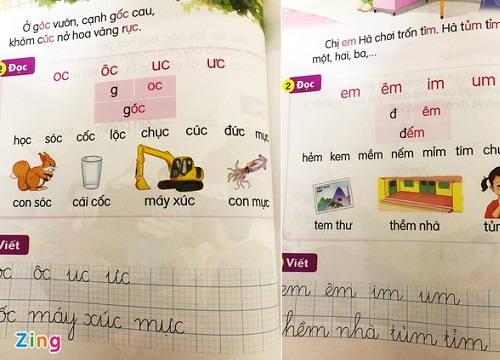 Ở góc vườn, cạnh gốc cau,
khóm cúc nở hoa vàng rực.
2 Đọc
oc ôc uc ưc
g oc
góc
học sóc cốc lộc chục cúc đức mực
con sóc cái cốc máy xúc con mực
Viết
oc ôc uc ưc
ốc máy xúc mực
Zing
Chị em Hà chơi trốn tìm. Hà tủm tỉm
một, hai, ba,...
2 Đọc
em êm im um
đ êm
đếm
hẻm kem mềm nếm mỉm tim
tem thư thềm nhà
Viết
em êm im um
thềm nhà tủm tỉm